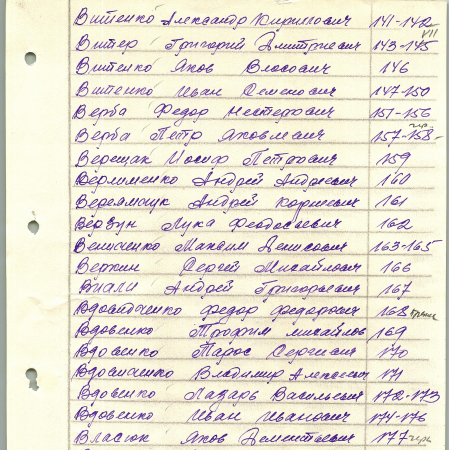 Витенко Александр Кириллович 141-142
VII
Витер Григорий Дмитриевич 143-145
Витенко Яков Власович 146
Витенко Иван Семенович 147-150
Верба Федор Нестерович 151-156
Верба Петр Яковлевич 157-158
Верещак Иосиф Петрович 159
Верлименко Андрей Андреевич 160
Веремчук Андрей Корнеевич 161
Верзун Лука Феодосиевич 162
Величенко Максим Денисович 163-165
Веркин Сергей Михайлович 166
Виали Андрей Григорьевич 167
Федор Федорович 168
Вдовенко Трофим Михайлов 169
Вдовенко Тарас Сергеевич 170
Владимир Алексеевич 171
Вдовенко Лазарь Васильевич 172-173
Вдовенко Иван Иванович 174-176
Власюк Яков Дементьевич 177